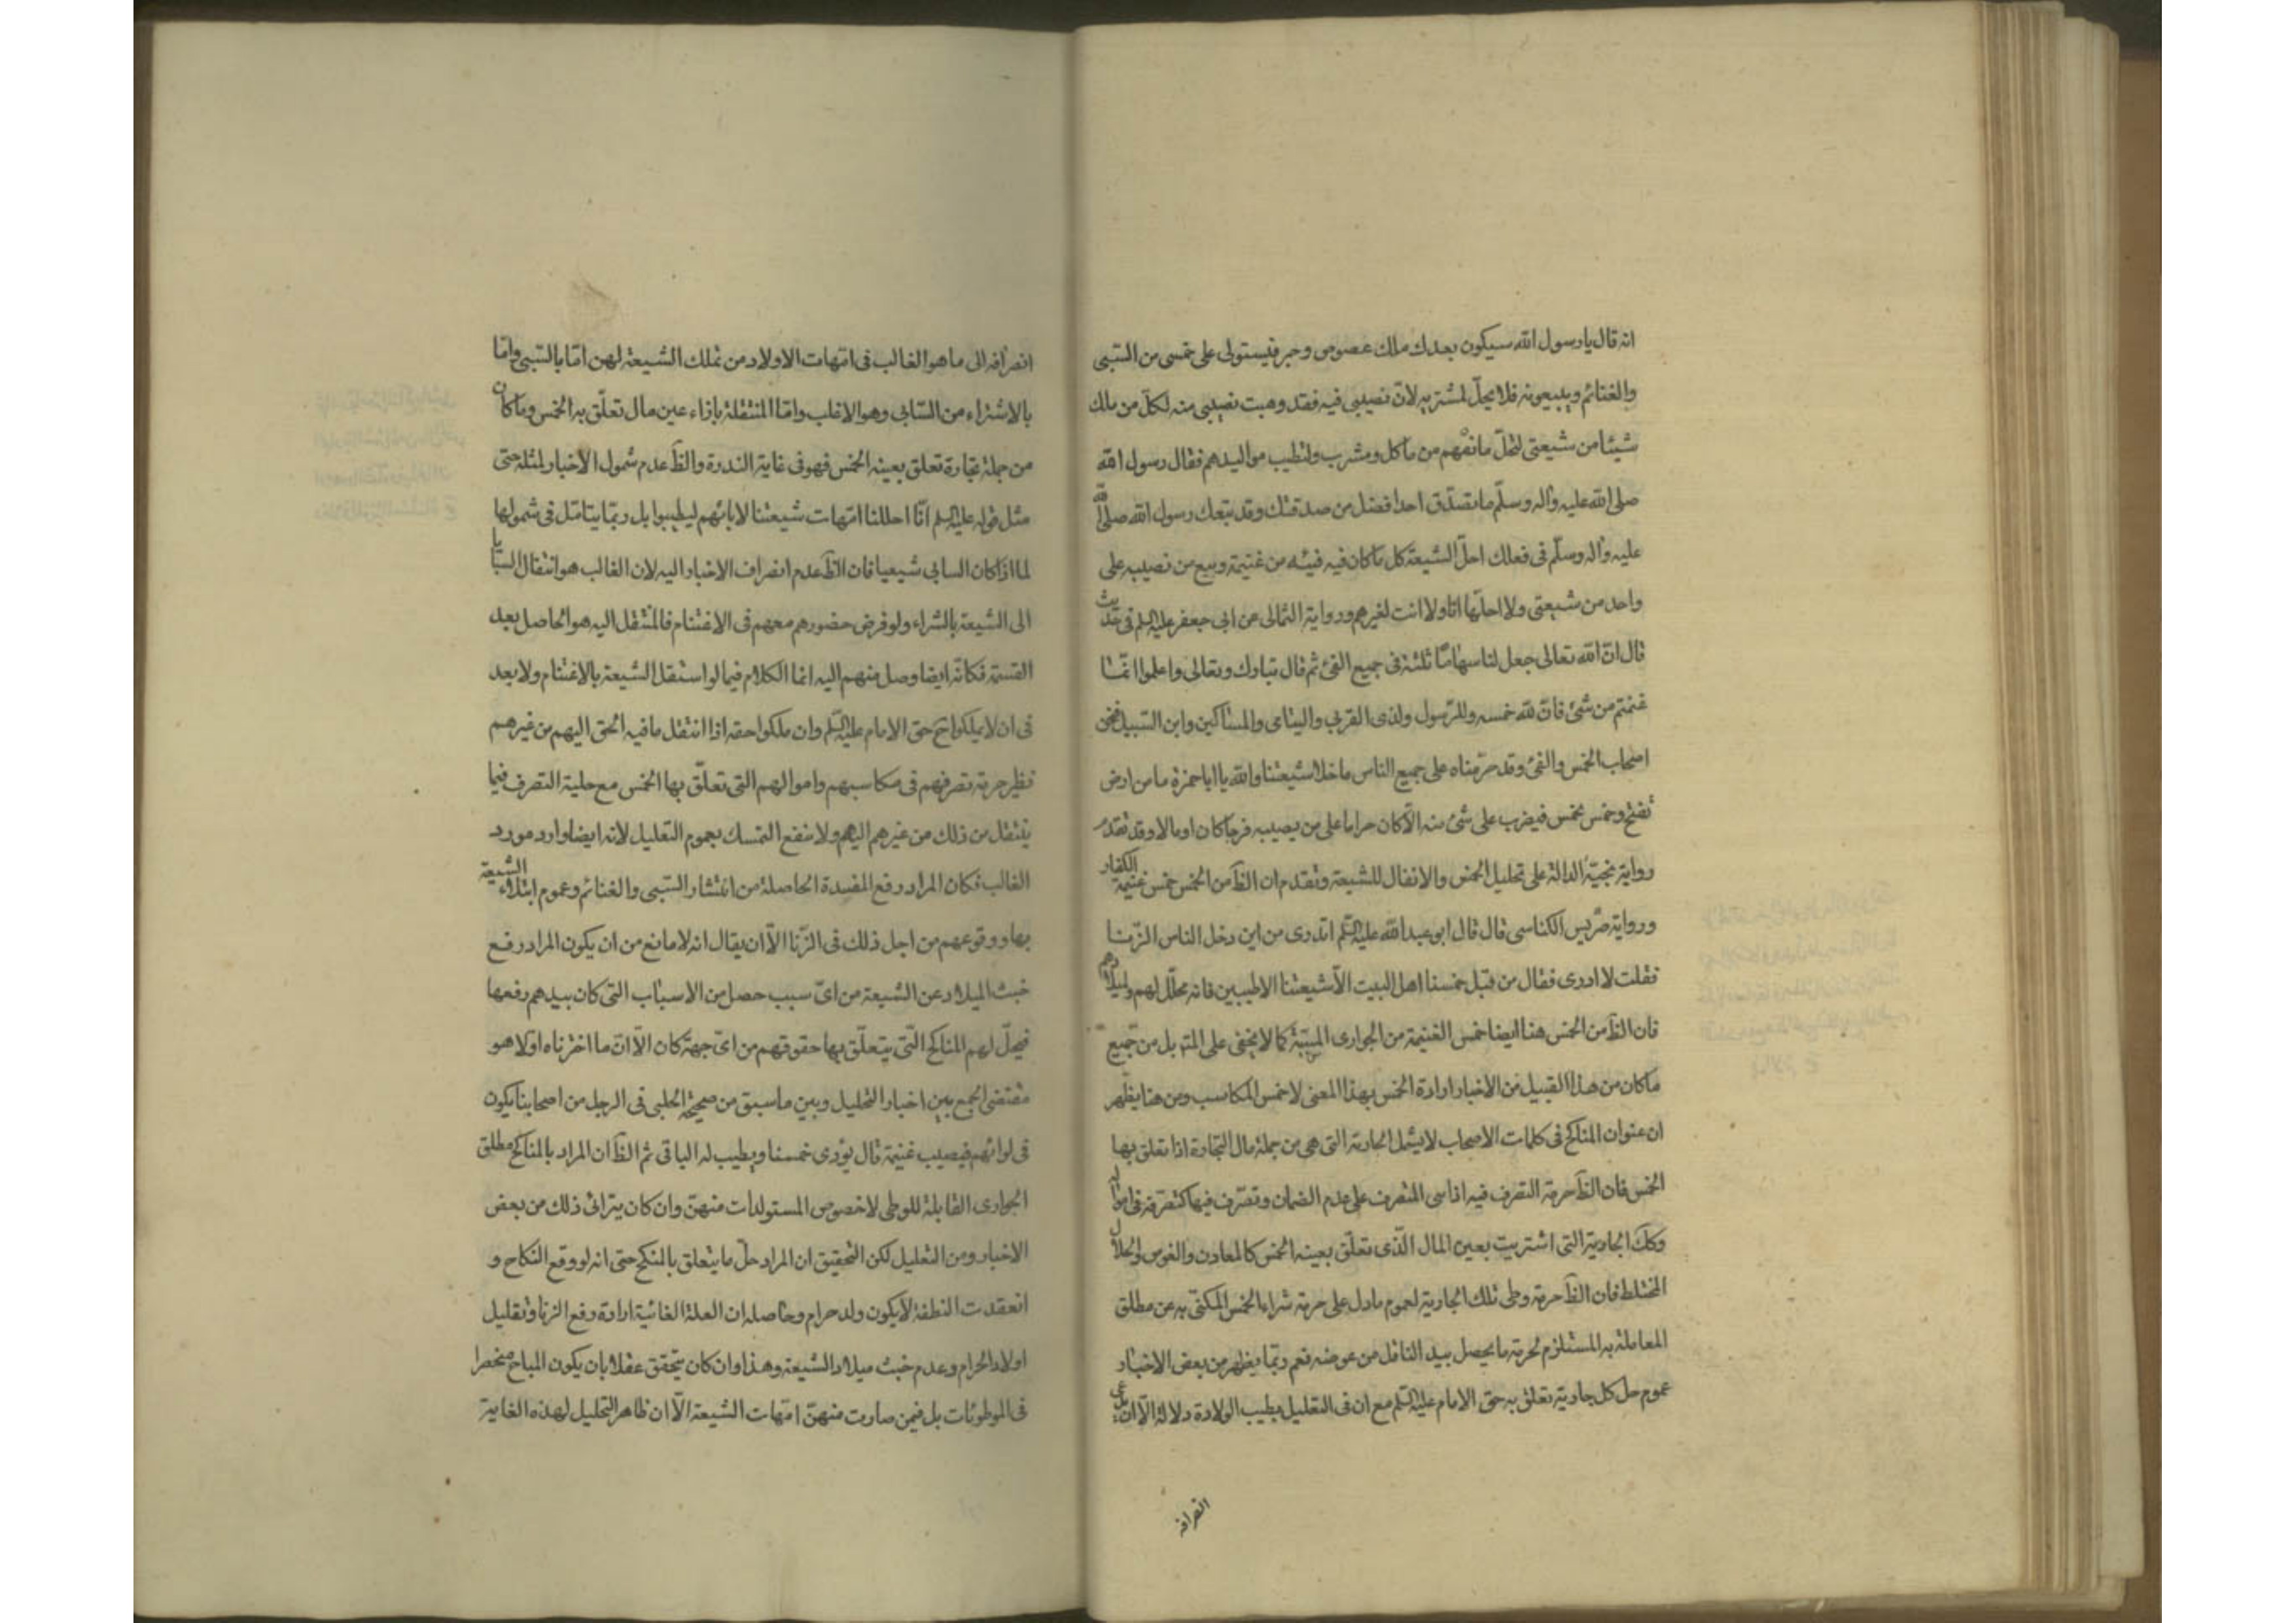 انه قال يا رسول الله سيكون بعدك ملك عضوض وجبر فيستولى على خمسى من السّبى
والغنائم ويبيعونه فلا يحلّ لمشتريه لانّ نصيبى فيه فقد وهبت نصيبى منه لكلّ من ملك
شيئا من شيعتى لتحلّ منافعهم من مأكل ومشرب ولتطيب مواليدهم فقال رسول الله
صلى الله عليه وآله وسلّم ما تصدّق احد افضل من صدقتك وقد تبعك رسول الله صلى الله
عليه وآله وسلّم فى فعلك احلّ الشيعة كل ما كان فيه فيئه من غنيمة وبيع من نصيبه على
واحد من شيعتى ولا احلّها انا ولا انت لغيرهم ورواية الثمالى عن ابى جعفر عليه السلم فى حديث
قال انّ الله تعالى جعل لنا سهاما ثلثة فى جميع الفئ ثم قال تبارك وتعالى واعلموا انّما
غنمتم من شئ فانّ لله خمسه وللرّسول ولذى القربى واليتامى والمساكين وابن السّبيل فنحن
اصحاب الخمس والفئ وقد حرّمناه على جميع الناس ما خلا شيعتنا والله يا ابا حمزة ما من ارض
تفتح وخمس يخمس فيضرب على شئ منه الّا كان حراما على من يصيبه فرجا كان او مالا وقد تقدّم
رواية نجيّة الدالة على تحليل الخمس والانفال للشيعة وتقدم ان الظَ من الخمس خمس غنيمة الكفار
ورواية ضريس الكناسى قال قال ابو عبد الله عليه السّلم اتدرى من اين دخل الناس الزّنا
فقلت لا ادرى فقال من قبل خمسنا اهل البيت الّا شيعتنا الاطيبين فانه محلّل لهم ولميلادهم
فان الظَ من الخمس هنا ايضا خمس الغنيمة من الجوارى المسبيّة كما لا يخفى على المتدبر بل من جميع
ما كان من هذا القبيل من الاخبار ارادة الخمس بهذا المعنى لا خمس المكاسب ومن هنا يظهر
ان عنوان المناكح فى كلمات الاصحاب لا يشمل الجارية التى هى من جملة مال التجارة اذا تعلق بها
الخمس فان الظَ حرمة التصرف فيه اذا بنى المتصرف على عدم الضمان وتصرّف فيها كتصرّفه فى امواله
وكك الجارية التى اشتريت بعين المال الّذى تعلّق بعينه الخمس كالمعادن والغوص والحلال
المختلط فان الظَ حرمة وطى تلك الجارية لعموم ما دل على حرمة شراء الخمس المكنّى به عن مطلق
المعاملة به المستلزم لحرمة ما يحصل بيد الناقل من عوضه نعم ربّما يظهر من بعض الاخبار
عموم حل كل جارية تعلق به حق الامام عليه السّلم مع ان فى التعليل بطيب الولادة دلالة الّا ان
انصرافه
انصرافه الى ما هو الغالب فى امّهات الاولاد من تملك الشّيعة لهن امّا بالسّبى وامّا
بالاشتراء من السّابى وهو الاغلب وامّا المنتقلة بازاء عين مال تعلّق به الخمس وما كان
من جملة تجارة تعلق بعينه الخمس فهو فى غاية الندرة والظَ عدم شمول الاخبار لمثله حتى
مثل قوله عليه السلم انّا احللنا امّهات شيعتنا لابائهم ليطيبوا بل ربّما يتامّل فى شمولها
لما اذا كان السابى شيعيا فان الظَ عدم انصراف الاخبار اليه لان الغالب هو انتقال السّبايا
الى الشّيعة بالشراء ولو فرض حضورهم معهم فى الاغتنام فالمنتقل اليه هو الحاصل بعد
القسمة فكانّه ايضا وصل منهم اليه انما الكلام فيما لو استقل الشّيعة بالاغتنام ولا بعد
فى ان لا يملكوا ح حق الامام عليه السّلم وان ملكوا حقه اذا انتقل ما فيه الحق اليهم من غيرهم
نظير حرمة تصرفهم فى مكاسبهم واموالهم التى تعلّق بها الخمس مع حلية التصرف فيما
ينتقل من ذلك من غيرهم اليهم ولا ينفع التمسك بعموم التعليل لانه ايضا وارد مورد
الغالب فكان المراد رفع المفسدة الحاصلة من انتشار السّبى والغنائم وعموم ابتلاء الشّيعة
بها ووقوعهم من اجل ذلك فى الزّنا الّا ان يقال انه لا مانع من ان يكون المراد رفع
خبث الميلاد عن الشيعة من اىّ سبب حصل من الاسباب التى كان بيدهم رفعها
فيحلّ لهم المناكح الّتى يتعلّق بها حقوقهم من اىّ جهة كان الّا انّ ما اخترناه اوّلا هو
مقتضى الجمع بين اخبار التحليل وبين ما سبق من صحيحة الحلبى فى الرجل من اصحابنا يكون
فى لوائهم فيصيب غنيمة قال يؤدى خمسنا ويطيب له الباقى ثم الظَ ان المراد بالمناكح مطلق
الجوارى القابلة للوطى لا خصوص المستولدات منهنّ وان كان يترائى ذلك من بعض
الاخبار ومن التعليل لكن التحقيق ان المراد حلّ ما يتعلق بالمنكح حتى انه لو وقع النكاح و
انعقدت النطفة لا يكون ولد حرام وحاصله ان العلة الغائية ارادة رفع الزنا وتقليل
اولاد الحرام وعدم خبث ميلاد الشّيعة وهذا وان كان يتحقق عقلا بان يكون المباح منحصرا
فى الموطوئات بل فيمن صارت منهنّ امّهات الشيعة الّا ان ظاهر التحليل لهذه الغاية